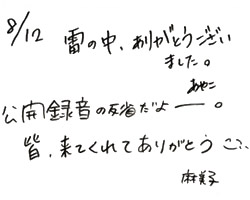 8/12
雷の中、ありがとうござい
ました。
あやこ
公開録音の反省だよー。
皆、来てくれてありがとう
麻美子